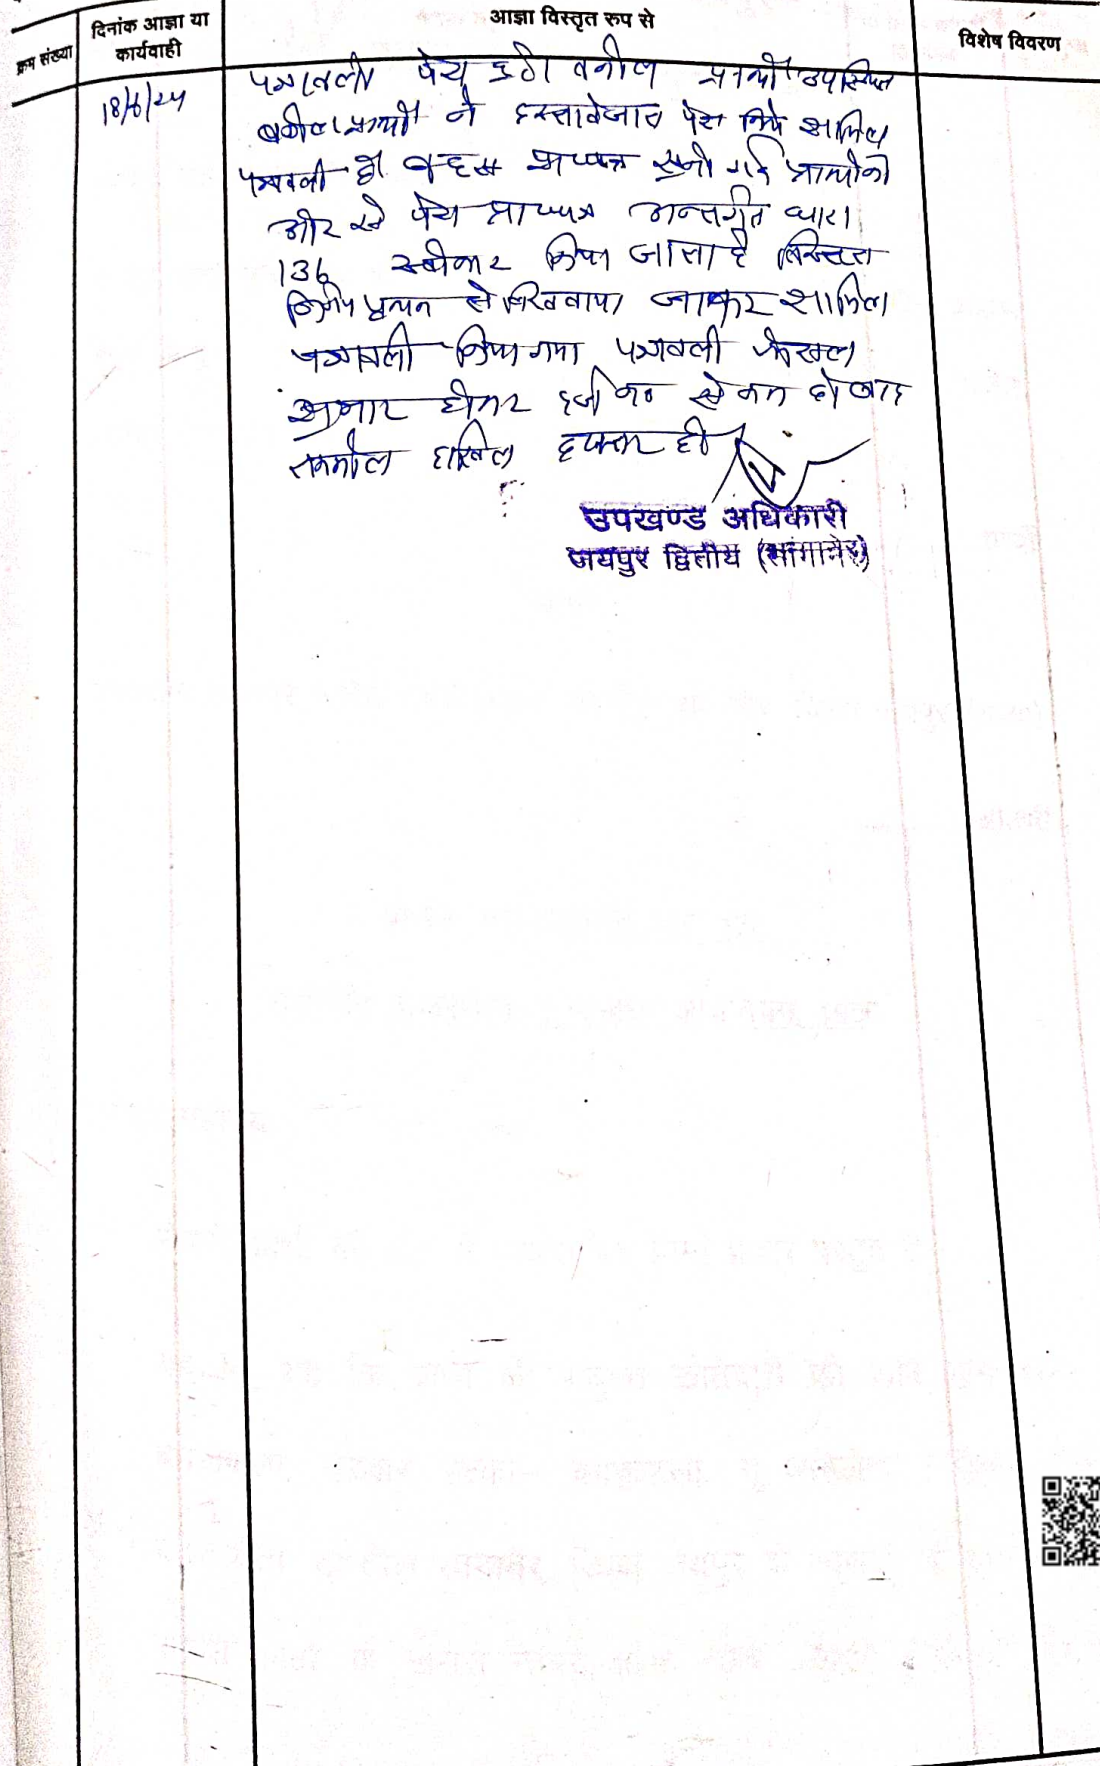 क्रम संख्या
दिनांक आज्ञा या
कार्यवाही
आज्ञा विस्तृत रुप से
विशेष विवरण
18/6/24
पत्रावली पेश हुई वकील प्रार्थी उपस्थित
वकील प्रार्थी ने दस्तावेजात पेश किये शामिल
पत्रावली हो बहस सुनी गई प्रार्थी की
ओर से पेश प्रा0पत्र अन्तर्गत धारा
136 स्वीकार किया जाता है विस्तृत
निर्णय पृथक से लिखवाया जाकर शामिल
पत्रावली किया गया पत्रावली फैसल
शुमार होकर दर्ज नं0 से कम हो बाद
तकमील दाखिल दफ्तर हो
उपखण्ड अधिकारी
जयपुर द्वितीय (सांगानेर)